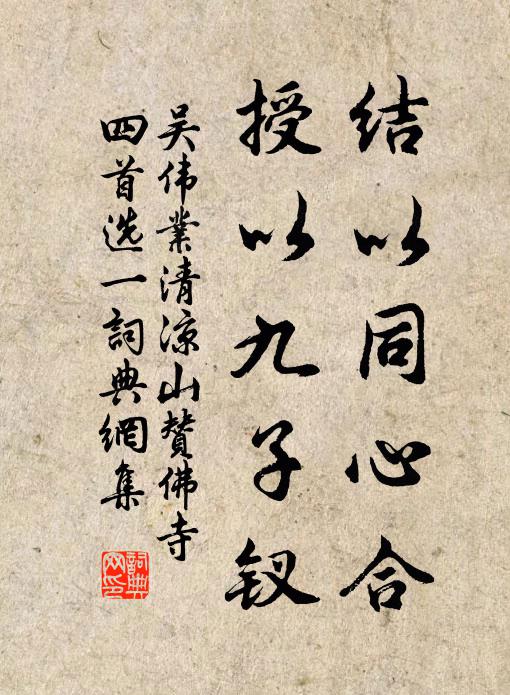 结以同心合
授以九子钗
吴伟業清凉山赞佛寺
四首选一詞典網集
詞典網印